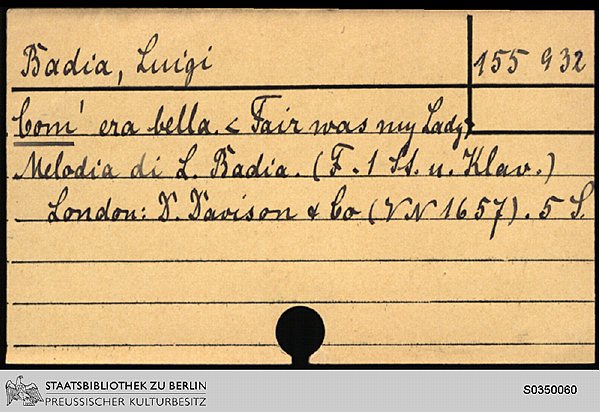 Badia, Luigi
155 932
Com' era bella. < Fair was my Lady>
Melodia di L. Badia. (F. 1 St. u. Klav.)
London: D. Davison & Co (VN 1657). 5 S.
STAATSBIBLIOTHEK ZU BERLIN
PREUSSISCHER KULTURBESITZ
S0350060